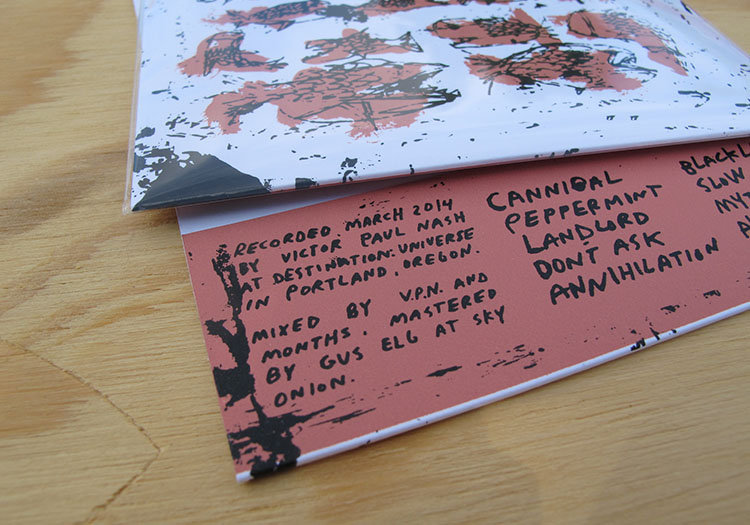 RECORDED MARCH 2014
BY VICTOR PAUL NASH
AT DESTINATION: UNIVERSE
IN PORTLAND, OREGON.
MIXED BY V.P.N. AND
MONTHS. MASTERED
BY GUS ELG AT SKY
ONION.
CANNIBAL
PEPPERMINT
LANDLORD
DON'T ASK
ANNIHILATION
BLACK
SLOW
MY